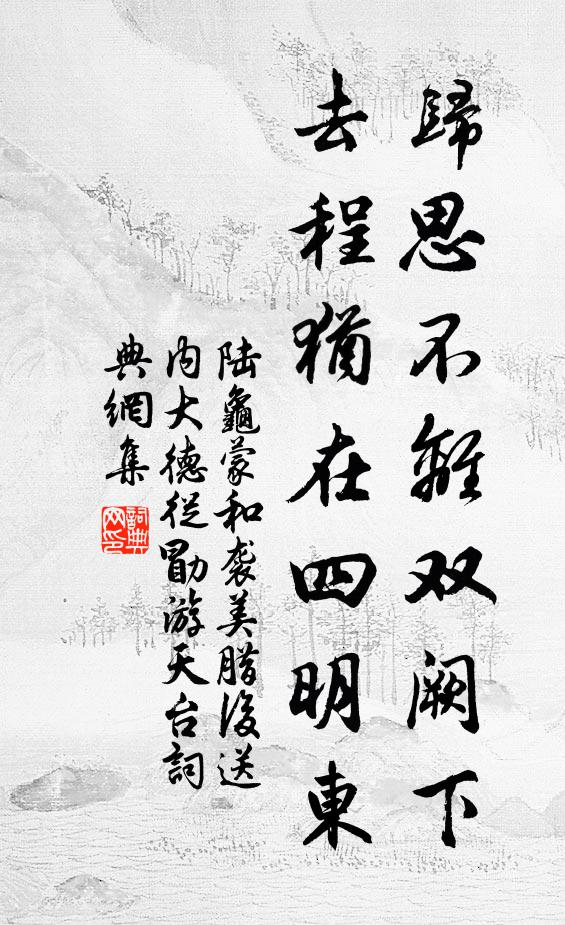 歸思不離双阙下
去程猶在四明東
陆龜蒙和袭美腊後送
内大德從勖游天台詞
典網集
詞典
网印